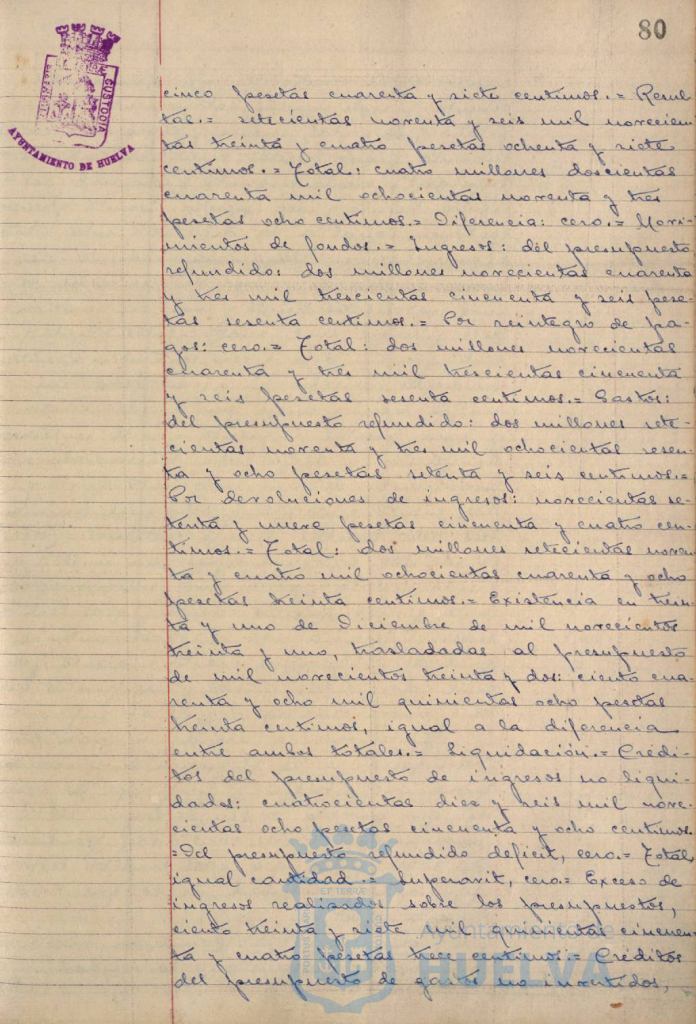 80
CUSTODIA
AYUNTAMIENTO DE HUELVA
cinco pesetas cuarenta y siete centimos.= Resul-
tas.= setecientas noventa y seis mil novecien-
tas treinta y cuatro pesetas ochenta y siete
centimos.= Total: cuatro millones doscientas
cuarenta mil ochocientas noventa y tres
pesetas ocho centimos.= Diferencia: cero.= Movi-
mientos de fondos.= Ingresos: del presupuesto
refundido: dos millones novecientas cuarenta
y tres mil trescientas cincuenta y seis pese-
tas sesenta centimos.= Por reintegro de pa-
gos: cero.= Total: dos millones novecientas
cuarenta y tres mil trescientas cincuenta
y seis pesetas sesenta centimos.= Gastos:
del presupuesto refundido: dos millones sete-
cientas noventa y tres mil ochocientas sesen-
ta y ocho pesetas setenta y seis centimos.=
Por devoluciones de ingresos: novecientas se-
tenta y nueve pesetas cincuenta y cuatro cen-
timos.= Total: dos millones setecientas noven-
ta y cuatro mil ochocientas cuarenta y ocho
pesetas treinta centimos.= Existencia en trein-
ta y uno de Diciembre de mil novecientos
treinta y uno, trasladadas al presupuesto
de mil novecientos treinta y dos: ciento cua-
renta y ocho mil quinientas ocho pesetas
treinta centimos, igual a la diferencia
entre ambos totales.= Liquidación.= Crédi-
tos del presupuesto de ingresos no liqui-
dados: cuatrocientas diez y seis mil nove-
cientas ocho pesetas cincuenta y ocho centimos.
=Del presupuesto refundido deficit, cero.= Total,
igual cantidad.= Superavit, cero.= Exceso de
ingresos realizados sobre los presupuestos,
ciento treinta y siete mil quinientas cincuen-
ta y cuatro pesetas trece centimos.= Créditos
del presupuesto de gastos no invertidos,
Ayuntamiento de
HUELVA